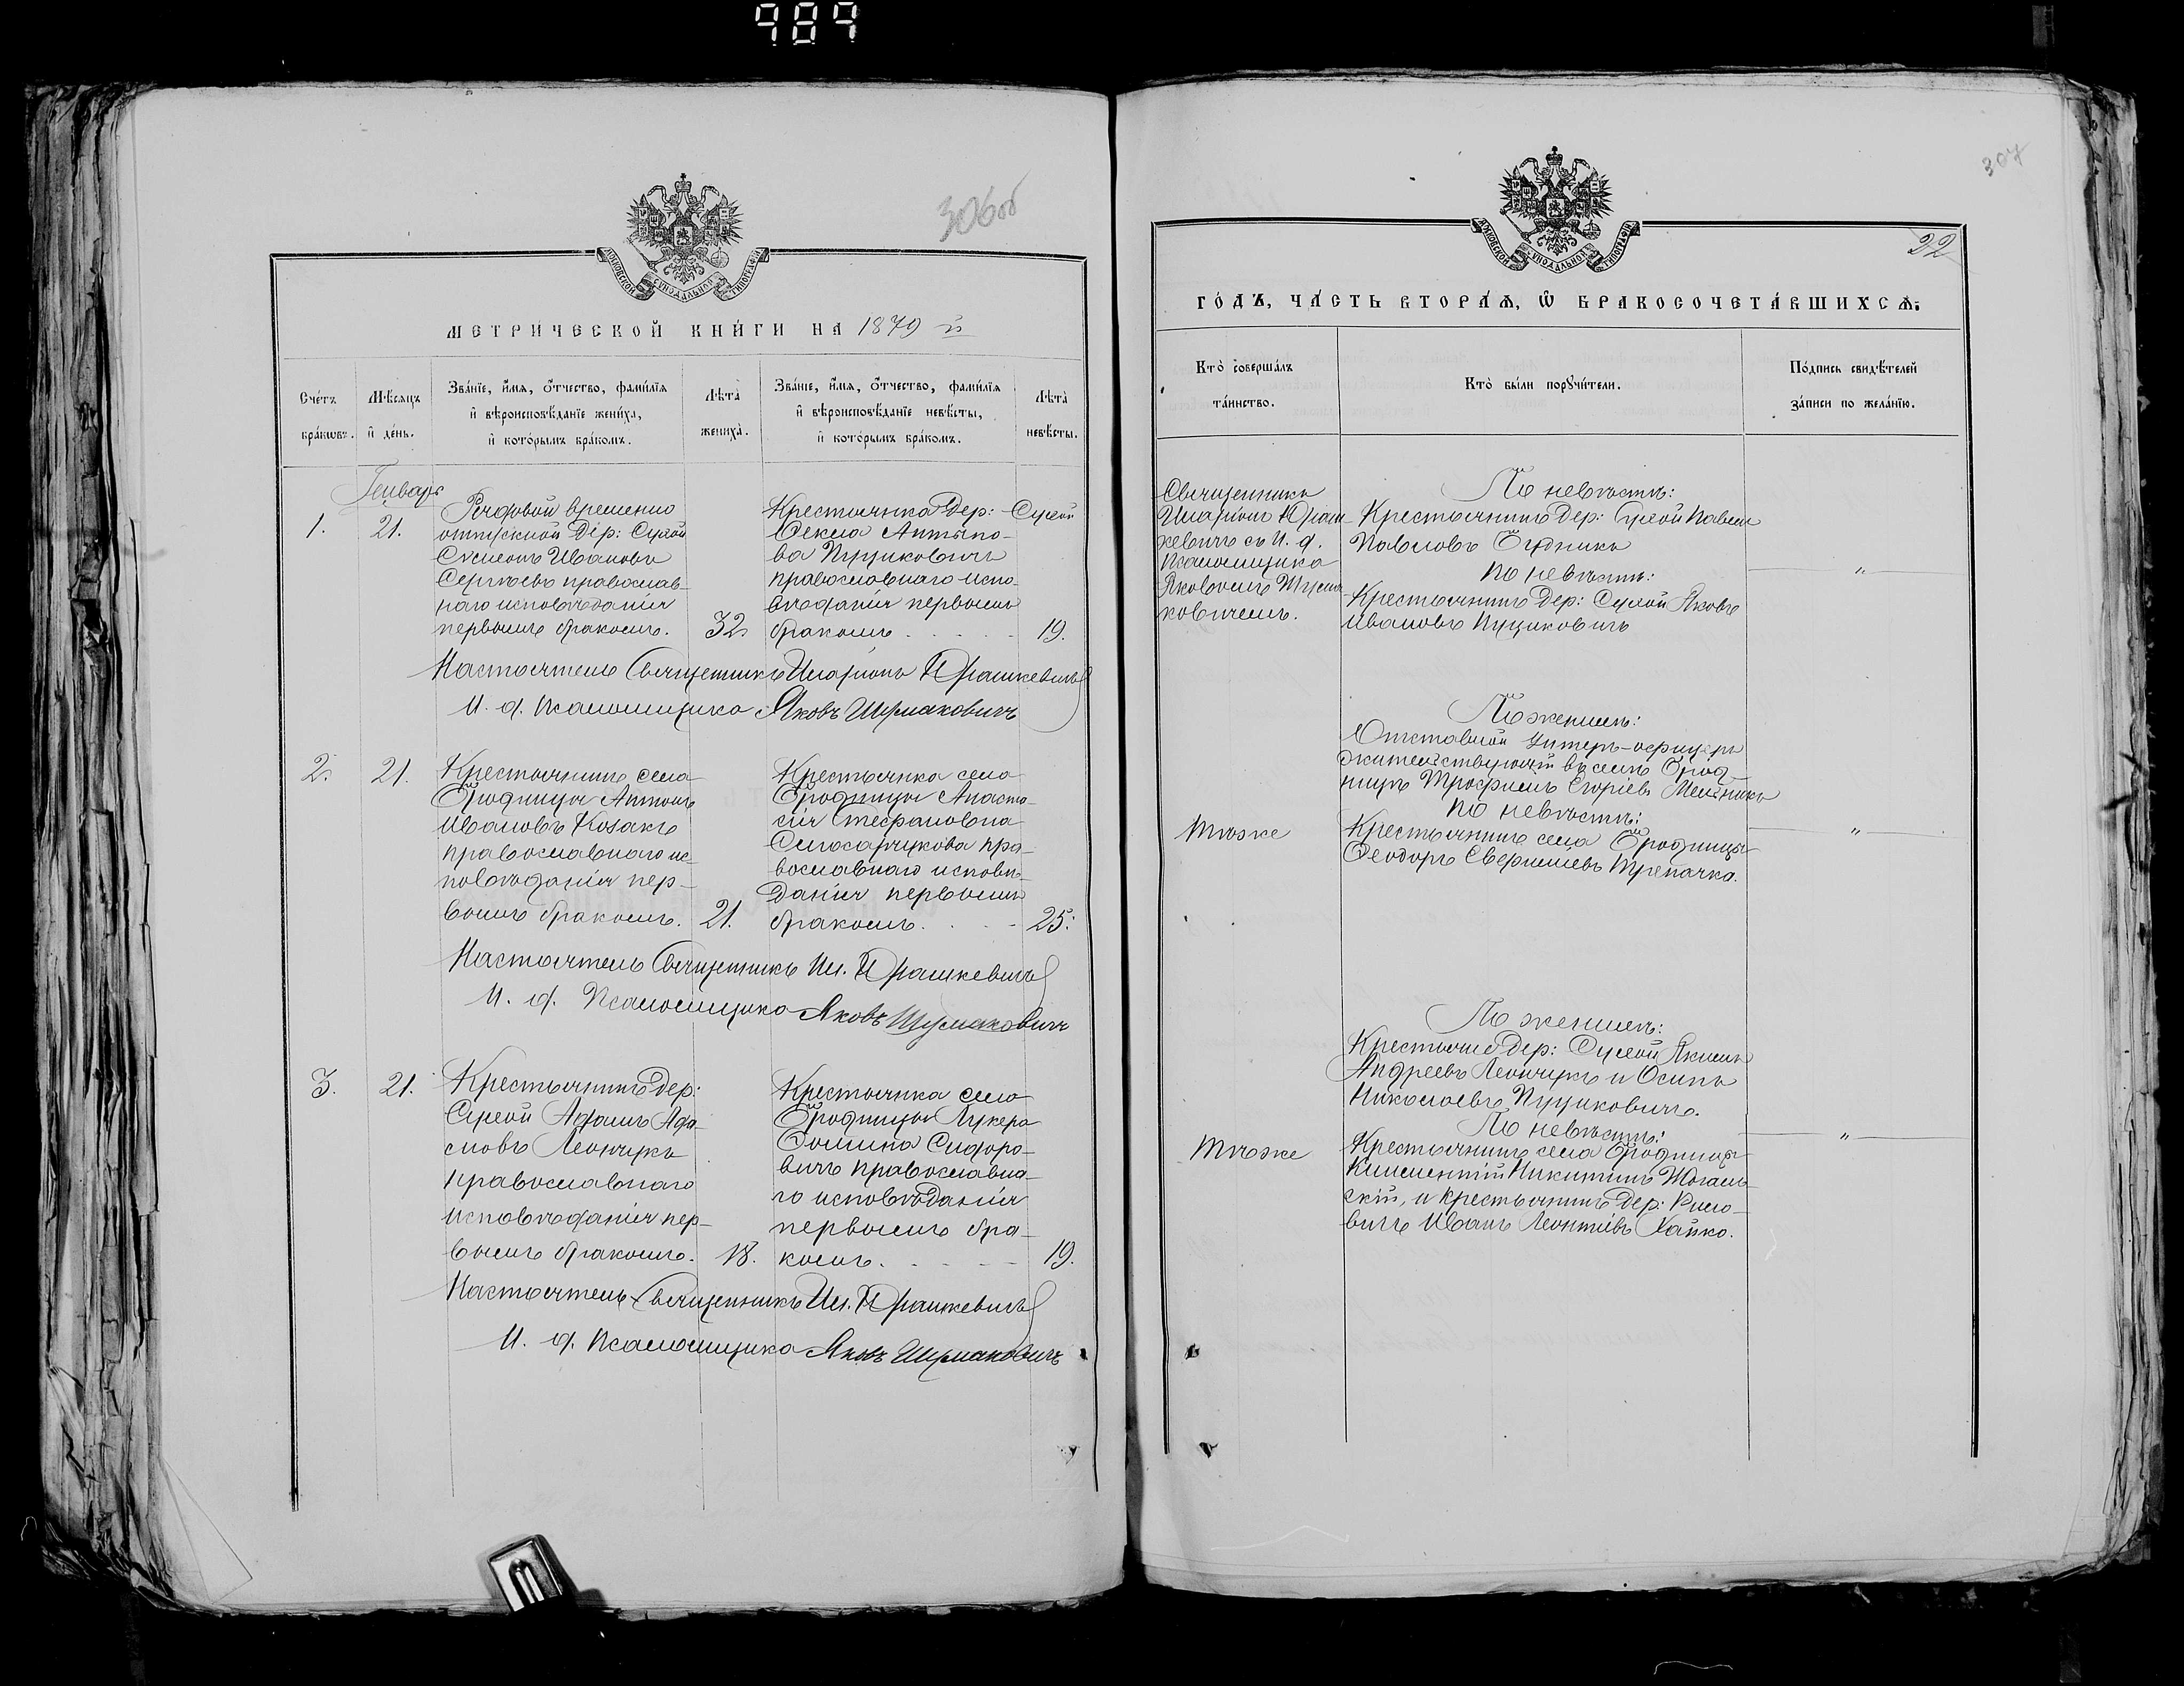 989
306об
МОСКОВСКОЙ СѴНОДАЛЬНОЙ ТИПОГРАФІИ
МЕТРИ́ЧЕСКОЙ КНИ́ГИ НА 1879 й
Сче́тъ бра́кωвъ.
Мѣ́сяцъ и҆ де́нь.
Зва́нїе, и҆́мѧ, ѻ҆́тчество, фами́лїѧ и҆ вѣроисповѣ́данїе жениха̀, и҆ кото́рымъ бра́комъ.
Лѣта̀ жениха̀.
Зва́нїе, и҆́мѧ, ѻ҆́тчество, фами́лїѧ и҆ вѣроисповѣ́данїе невѣ́сты, и҆ кото́рымъ бра́комъ.
Лѣта̀ невѣ́сты.
Генварь
1.
21.
Рядовой временно
отпускной Дер: Сухой
Симеонъ Ивановъ
Сергѣевъ православ-
наго исповѣданія
первымъ бракомъ.
32.
Крестьянка Дер: Сухой
Ѳекла Антыпо-
ва Пуциковичъ
православнаго испо-
вѣданія первымъ
бракомъ
19.
Настоятель Священникъ Иларіонъ Юрашкевичъ
И. д. Псаломщика Яковъ Шумаковичъ
2.
21.
Крестьянинъ села
Бродницы Антонъ
Ивановъ Козакъ
православнаго ис-
повѣданія пер-
вымъ бракомъ.
21.
Крестьянка села
Бродницы Анаста-
сія Стефановна
Слюсарчукова пра-
вославнаго исповѣ-
данія первымъ
бракомъ.
25.
Настоятель Священникъ Ил. Юрашкевичъ
И. д. Псаломщика Яковъ Шумаковичъ
3.
21.
Крестьянинъ Дер:
Сухой Адамъ Ада-
мовъ Леончукъ
православнаго
исповѣданія пер-
вымъ бракомъ.
18.
Крестьянка села
Бродницы Лукера
Ѳомина Сидоро-
вичъ православна-
го исповѣданія
первымъ бра-
комъ.
19.
Настоятель Священникъ Ил. Юрашкевичъ
И. д. Псаломщика Яковъ Шумаковичъ
307
22
МОСКОВСКОЙ СѴНОДАЛЬНОЙ ТИПОГРАФІИ
ГО́ДЪ, ЧА́СТЬ ВТОРА́Ѧ, Ѽ БРАКОСОЧЕТА́ВШИХСѦ:
Кто̀ соверша́лъ та́инство.
Кто̀ бы́ли порꙋчи́тели.
По́дпись свидѣ́телей за́писи по жела́нїю.
Священникъ
Иларіонъ Юраш-
кевичъ съ И. д.
Псаломщика
Яковомъ Шума-
ковичемъ.
По невѣстѣ:
Крестьянинъ Дер: Сухой Павелъ
Павловъ
По невѣстѣ:
Крестьянинъ Дер: Сухой Яковъ
Ивановъ Пуциковичъ
"
Тѣже
По женихѣ:
Отставной Унтеръ-офицеръ
жительствующій въ селѣ Брод-
ницѣ Трофимъ Егоріевъ Мельникъ
По невѣстѣ:
Крестьянинъ села Бродницы
Ѳеодоръ Трепачко.
"
Тѣже
По женихѣ:
Крестьяне Дер: Сухой Якимъ
Андреевъ Леончукъ и Осипъ
Николаевъ Пуциковичъ.
По невѣстѣ:
Крестьянинъ села Бродницы
Климентій Никитинъ
и крестьянинъ Дер:
Иванъ Леонтіевъ Хайко.
"